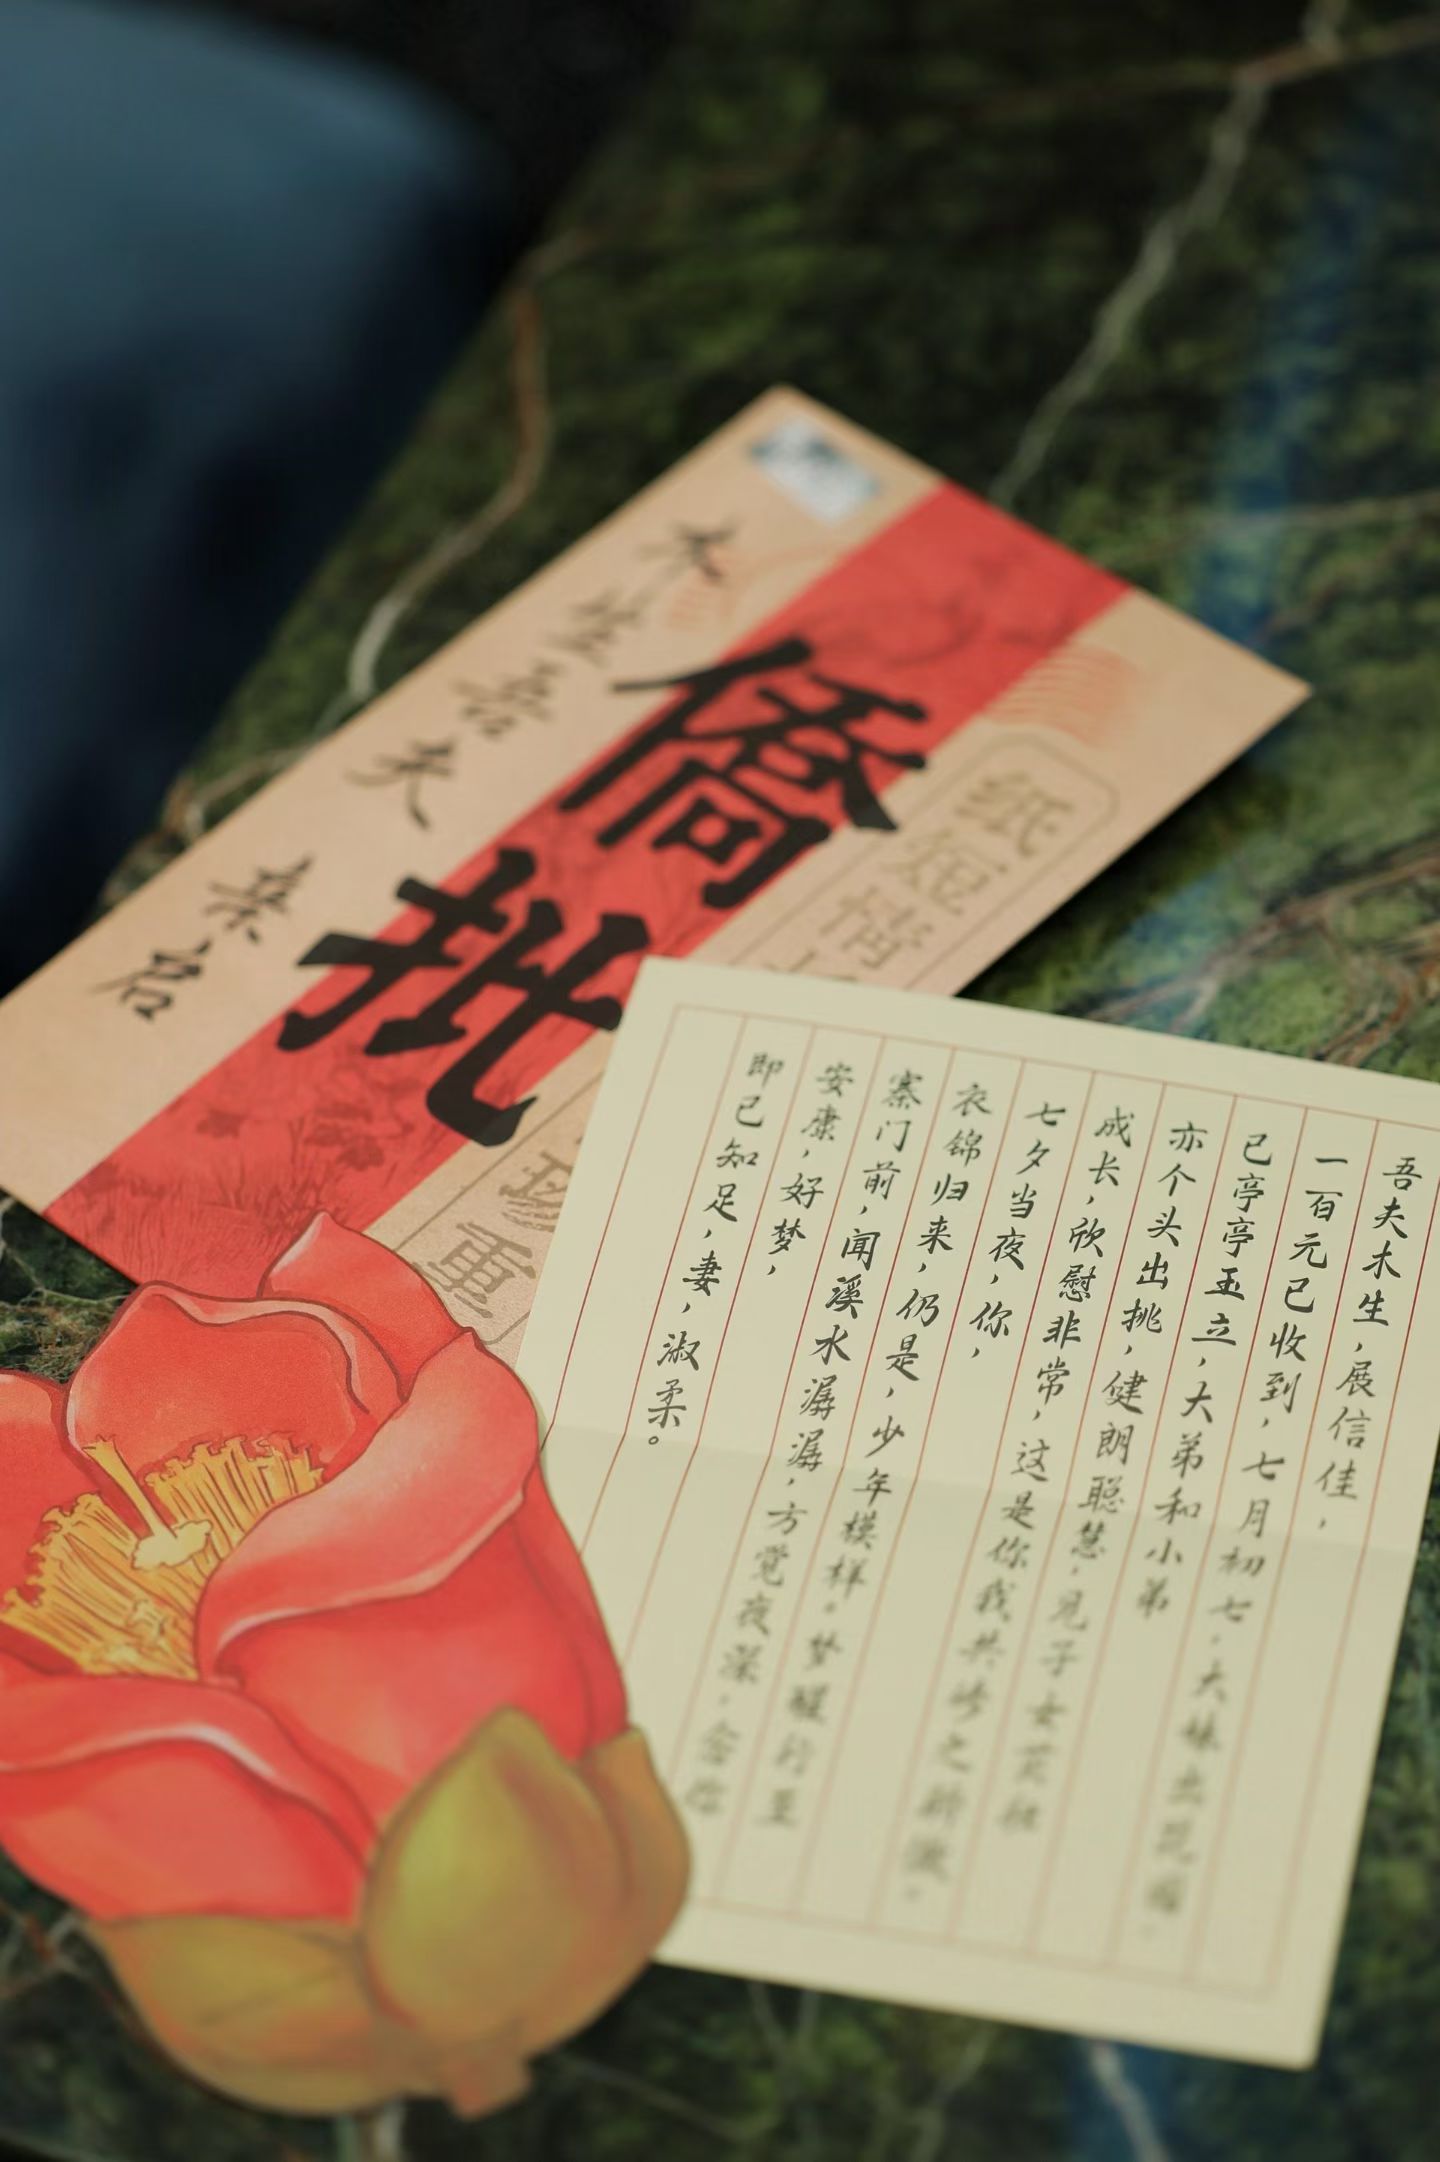 木生吾夫 亲启
僑批
纸短情
珍重
吾夫木生，展信佳，
一百元已收到，七月初七。大妹出落得
已亭亭玉立，大弟和小弟
亦个头出挑，健朗聪慧，见子女茁壮
成长，欣慰非常，这是你我共修之所徽。
七夕当夜，你，
衣锦归来，仍是，少年模样。梦醒行至
寨门前，闻溪水潺潺，方觉夜深。念你
安康，好梦，
即已知足，妻，淑柔。